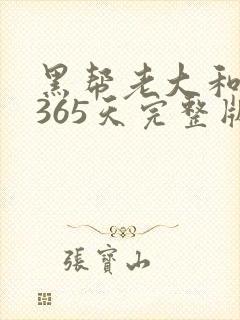 黑帮老大和
365天完整版
張寶山